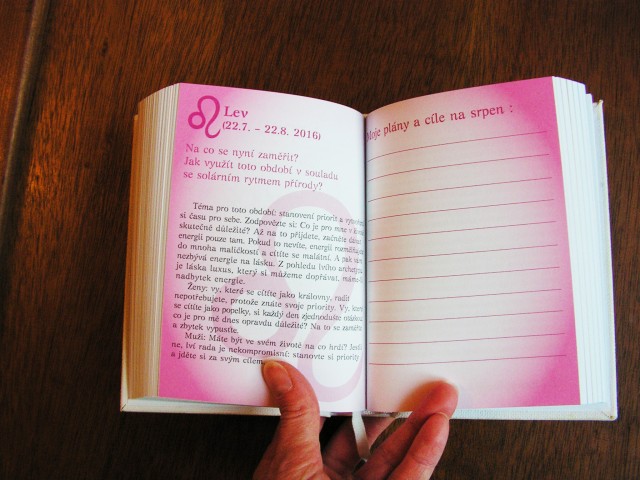 Lev
(22.7. – 22.8. 2016)
Na co se nyní zaměřit?
Jak využít toto období v souladu
se solárním rytmem přírody?
Téma pro toto období: stanovení priorit a
si času pro sebe. Zodpovězte si: Co je pro mne v
skutečně důležité? Až na to přijdete, začněte
energii pouze tam. Pokud to nevíte, energii
do mnoha maličkostí a cítíte se malátní. A pak
nezbývá energie na lásku. Z pohledu lvího
je láska luxus, který si můžeme dopřávat,
nadbytek energie.
Ženy: vy, které se cítíte jako královny, radit
nepotřebujete, protože znáte svoje priority. Vy,
se cítíte jako popelky, si každý den zjednodušte
co je pro mě dnes opravdu důležité? Na to se
a zbytek vypusťte.
Muži: Máte být ve svém životě na co hrdí?
ne, lví rada je nekompromisní: stanovte si priority
a jděte si za svým cílem.
Moje plány a cíle na srpen :